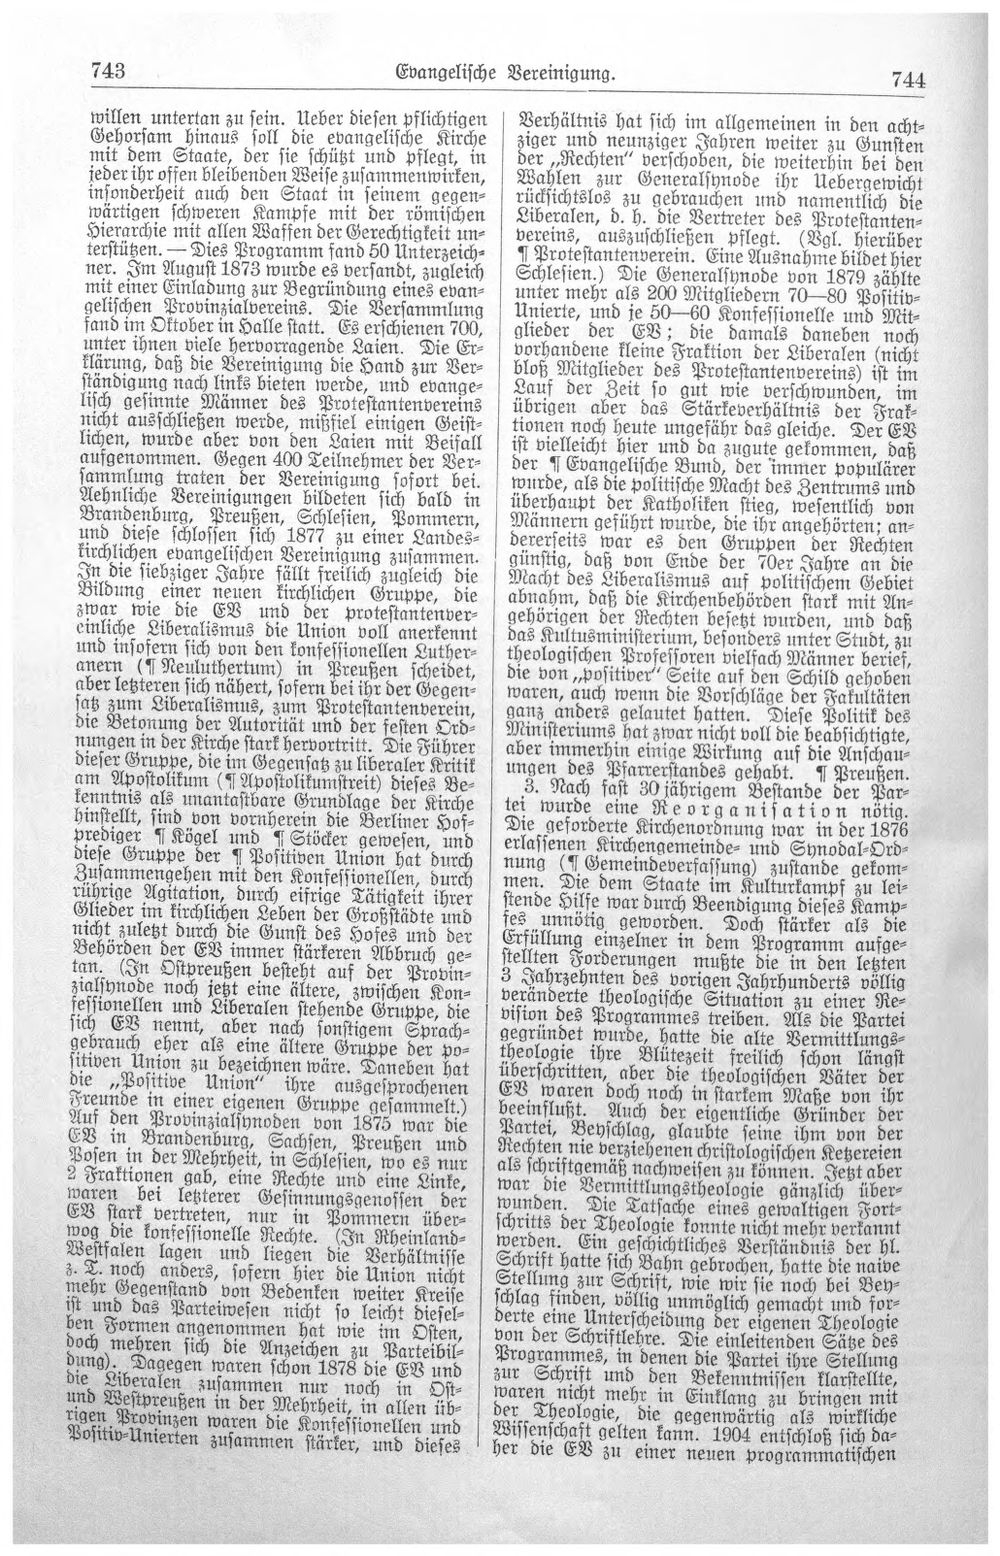 743
Evangelische Vereinigung.
744
willen untertan zu sein. Ueber diesen pflichtigen
Gehorsam hinaus soll die evangelische Kirche
mit dem Staate, der sie schützt und pflegt, in
jeder ihr offen bleibenden Weise zusammenwirken,
insonderheit auch den Staat in seinem gegen-
wärtigen schweren Kampfe mit der römischen
Hierarchie mit allen Waffen der Gerechtigkeit un-
terstützen. — Dies Programm fand 50 Unterzeich-
ner. Im August 1873 wurde es versandt, zugleich
mit einer Einladung zur Begründung eines evan-
gelischen Provinzialvereins. Die Versammlung
fand im Oktober in Halle statt. Es erschienen 700,
unter ihnen viele hervorragende Laien. Die Er-
klärung, daß die Vereinigung die Hand zur Ver-
ständigung nach links bieten werde, und evange-
lisch gesinnte Männer des Protestantenvereins
nicht ausschließen werde, mißfiel einigen Geist-
lichen, wurde aber von den Laien mit Beifall
aufgenommen. Gegen 400 Teilnehmer der Ver-
sammlung traten der Vereinigung sofort bei.
Aehnliche Vereinigungen bildeten sich bald in
Brandenburg, Preußen, Schlesien, Pommern,
und diese schlossen sich 1877 zu einer Landes-
kirchlichen evangelischen Vereinigung zusammen.
In die siebziger Jahre fällt freilich zugleich die
Bildung einer neuen kirchlichen Gruppe, die
zwar wie die EV und der protestantenver-
einliche Liberalismus die Union voll anerkennt
und insofern sich von den konfessionellen Luther-
anern (¶ Neuluthertum) in Preußen scheidet,
aber letzteren sich nähert, sofern bei ihr der Gegen-
satz zum Liberalismus, zum Protestantenverein,
die Betonung der Autorität und der festen Ord-
nungen in der Kirche stark hervortritt. Die Führer
dieser Gruppe, die im Gegensatz zu liberaler Kritik
am Apostolikum (¶ Apostolikumstreit) dieses Be-
kenntnis als unantastbare Grundlage der Kirche
hinstellt, sind von vornherein die Berliner Hof-
prediger ¶ Kögel und ¶ Stöcker gewesen, und
diese Gruppe der ¶ Positiven Union hat durch
Zusammengehen mit den Konfessionellen, durch
rührige Agitation, durch eifrige Tätigkeit ihrer
Glieder im kirchlichen Leben der Großstädte und
nicht zuletzt durch die Gunst des Hofes und der
Behörden der EV immer stärkeren Abbruch ge-
tan. (In Ostpreußen besteht auf der Provin-
zialsynode noch jetzt eine ältere, zwischen Kon-
fessionellen und Liberalen stehende Gruppe, die
sich EV nennt, aber nach sonstigem Sprach-
gebrauch eher als eine ältere Gruppe der po-
sitiven Union zu bezeichnen wäre. Daneben hat
die „Positive Union“ ihre ausgesprochenen
Freunde in einer eigenen Gruppe gesammelt.)
Auf den Provinzialsynoden von 1875 war die
EV in Brandenburg, Sachsen, Preußen und
Posen in der Mehrheit, in Schlesien, wo es nur
2 Fraktionen gab, eine Rechte und eine Linke,
waren bei letzterer Gesinnungsgenossen der
EV stark vertreten, nur in Pommern über-
wog die konfessionelle Rechte. (In Rheinland-
Westfalen lagen und liegen die Verhältnisse
z. T. noch anders, sofern hier die Union nicht
mehr Gegenstand von Bedenken weiter Kreise
ist und das Parteiwesen nicht so leicht diesel-
ben Formen angenommen hat wie im Osten,
doch mehren sich die Anzeichen zu Parteibil-
dung). Dagegen waren schon 1878 die EV und
die Liberalen zusammen nur noch in Ost-
und Westpreußen in der Mehrheit, in allen üb-
rigen Provinzen waren die Konfessionellen und
Positiv-Unierten zusammen stärker, und dieses
Verhältnis hat sich im allgemeinen in den acht-
ziger und neunziger Jahren weiter zu Gunsten
der „Rechten“ verschoben, die weiterhin bei den
Wahlen zur Generalsynode ihr Uebergewicht
rücksichtslos zu gebrauchen und namentlich die
Liberalen, d. h. die Vertreter des Protestanten-
vereins, auszuschließen pflegt. (Vgl. hierüber
¶ Protestantenverein. Eine Ausnahme bildet hier
Schlesien.) Die Generalsynode von 1879 zählte
unter mehr als 200 Mitgliedern 70—80 Positiv-
Unierte, und je 50—60 Konfessionelle und Mit-
glieder der EV; die damals daneben noch
vorhandene kleine Fraktion der Liberalen (nicht
bloß Mitglieder des Protestantenvereins) ist im
Lauf der Zeit so gut wie verschwunden, im
übrigen aber das Stärkeverhältnis der Frak-
tionen noch heute ungefähr das gleiche. Der EV
ist vielleicht hier und da zugute gekommen, daß
der ¶ Evangelische Bund, der immer populärer
wurde, als die politische Macht des Zentrums und
überhaupt der Katholiken stieg, wesentlich von
Männern geführt wurde, die ihr angehörten; an-
dererseits war es den Gruppen der Rechten
günstig, daß von Ende der 70er Jahre an die
Macht des Liberalismus auf politischem Gebiet
abnahm, daß die Kirchenbehörden stark mit An-
gehörigen der Rechten besetzt wurden, und daß
das Kultusministerium, besonders unter Studt, zu
theologischen Professoren vielfach Männer berief,
die von „positiver“ Seite auf den Schild gehoben
waren, auch wenn die Vorschläge der Fakultäten
ganz anders gelautet hatten. Diese Politik des
Ministeriums hat zwar nicht voll die beabsichtigte,
aber immerhin einige Wirkung auf die Anschau-
ungen des Pfarrerstandes gehabt. ¶ Preußen.
3. Nach fast 30jährigem Bestande der Par-
tei wurde eine Reorganisation nötig.
Die geforderte Kirchenordnung war in der 1876
erlassenen Kirchengemeinde- und Synodal-Ord-
nung (¶ Gemeindeverfassung) zustande gekom-
men. Die dem Staate im Kulturkampf zu lei-
stende Hilfe war durch Beendigung dieses Kamp-
fes unnötig geworden. Doch stärker als die
Erfüllung einzelner in dem Programm aufge-
stellten Forderungen mußte die in den letzten
3 Jahrzehnten des vorigen Jahrhunderts völlig
veränderte theologische Situation zu einer Re-
vision des Programmes treiben. Als die Partei
gegründet wurde, hatte die alte Vermittlungs-
theologie ihre Blütezeit freilich schon längst
überschritten, aber die theologischen Väter der
EV waren doch noch in starkem Maße von ihr
beeinflußt. Auch der eigentliche Gründer der
Partei, Beyschlag, glaubte seine ihm von der
Rechten nie verziehenen christologischen Ketzereien
als schriftgemäß nachweisen zu können. Jetzt aber
war die Vermittlungstheologie gänzlich über-
wunden. Die Tatsache eines gewaltigen Fort-
schritts der Theologie konnte nicht mehr verkannt
werden. Ein geschichtliches Verständnis der hl.
Schrift hatte sich Bahn gebrochen, hatte die naive
Stellung zur Schrift, wie wir sie noch bei Bey-
schlag finden, völlig unmöglich gemacht und for-
derte eine Unterscheidung der eigenen Theologie
von der Schriftlehre. Die einleitenden Sätze des
Programmes, in denen die Partei ihre Stellung
zur Schrift und den Bekenntnissen klarstellte,
waren nicht mehr in Einklang zu bringen mit
der Theologie, die gegenwärtig als wirkliche
Wissenschaft gelten kann. 1904 entschloß sich da-
her die EV zu einer neuen programmatischen